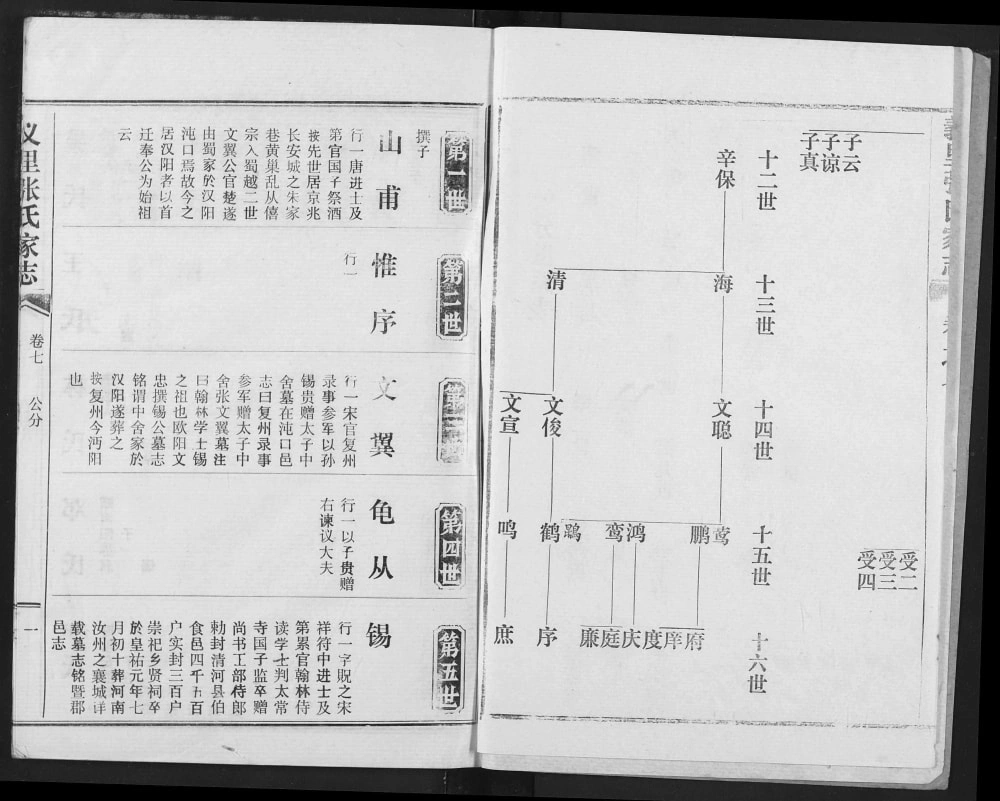 子云
子谅
子真
受二
受三
受四
十二世
辛保
十三世
海
清
十四世
文聪
文俊
文宣
十五世
莺
鹏
鸿
鸾
鹤
鸣
十六世
府
庠
度
庆
庭
廉
序
庶
第一世
撰子
山甫
行一唐进士及
第官国子祭酒
按先世居京兆
长安城之朱家
巷黄巢乱从僖
宗入蜀越二世
文翼公官楚遂
由蜀家於汉阳
沌口焉故今之
居汉阳者以首
迁奉公为始祖
云
第二世
惟序
行一
第三世
文翼
行一宋官复州
录事参军以孙
锡贵赠太子中
舍墓在沌口邑
志曰复州录事
参军赠太子中
舍张文翼墓注
曰翰林学士锡
之祖也欧阳文
忠撰锡公墓志
铭谓中舍家於
汉阳遂葬之
按复州今沔阳
也
第四世
龟从
行一以子贵赠
右谏议大夫
第五世
锡
行一字贶之宋
祥符中进士及
第累官翰林侍
读学士判太常
寺国子监卒赠
尚书工部侍郎
勅封清河县伯
食邑四千五百
户实封三百户
崇祀乡贤祠卒
於皇祐元年七
月初十葬河南
汝州之襄城详
载墓志铭暨郡
邑志
义里张氏家志
卷七
公分
一